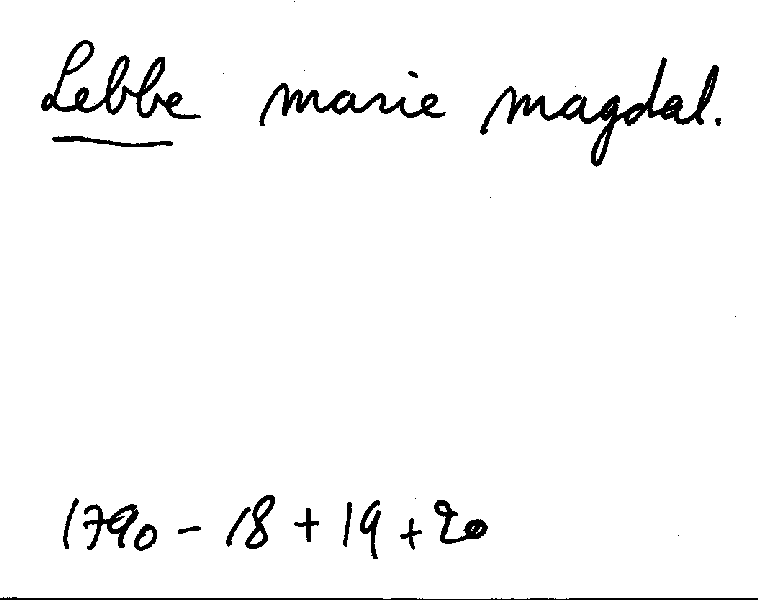 Lebbe marie magdal.
1790 - 18 + 19 + 20